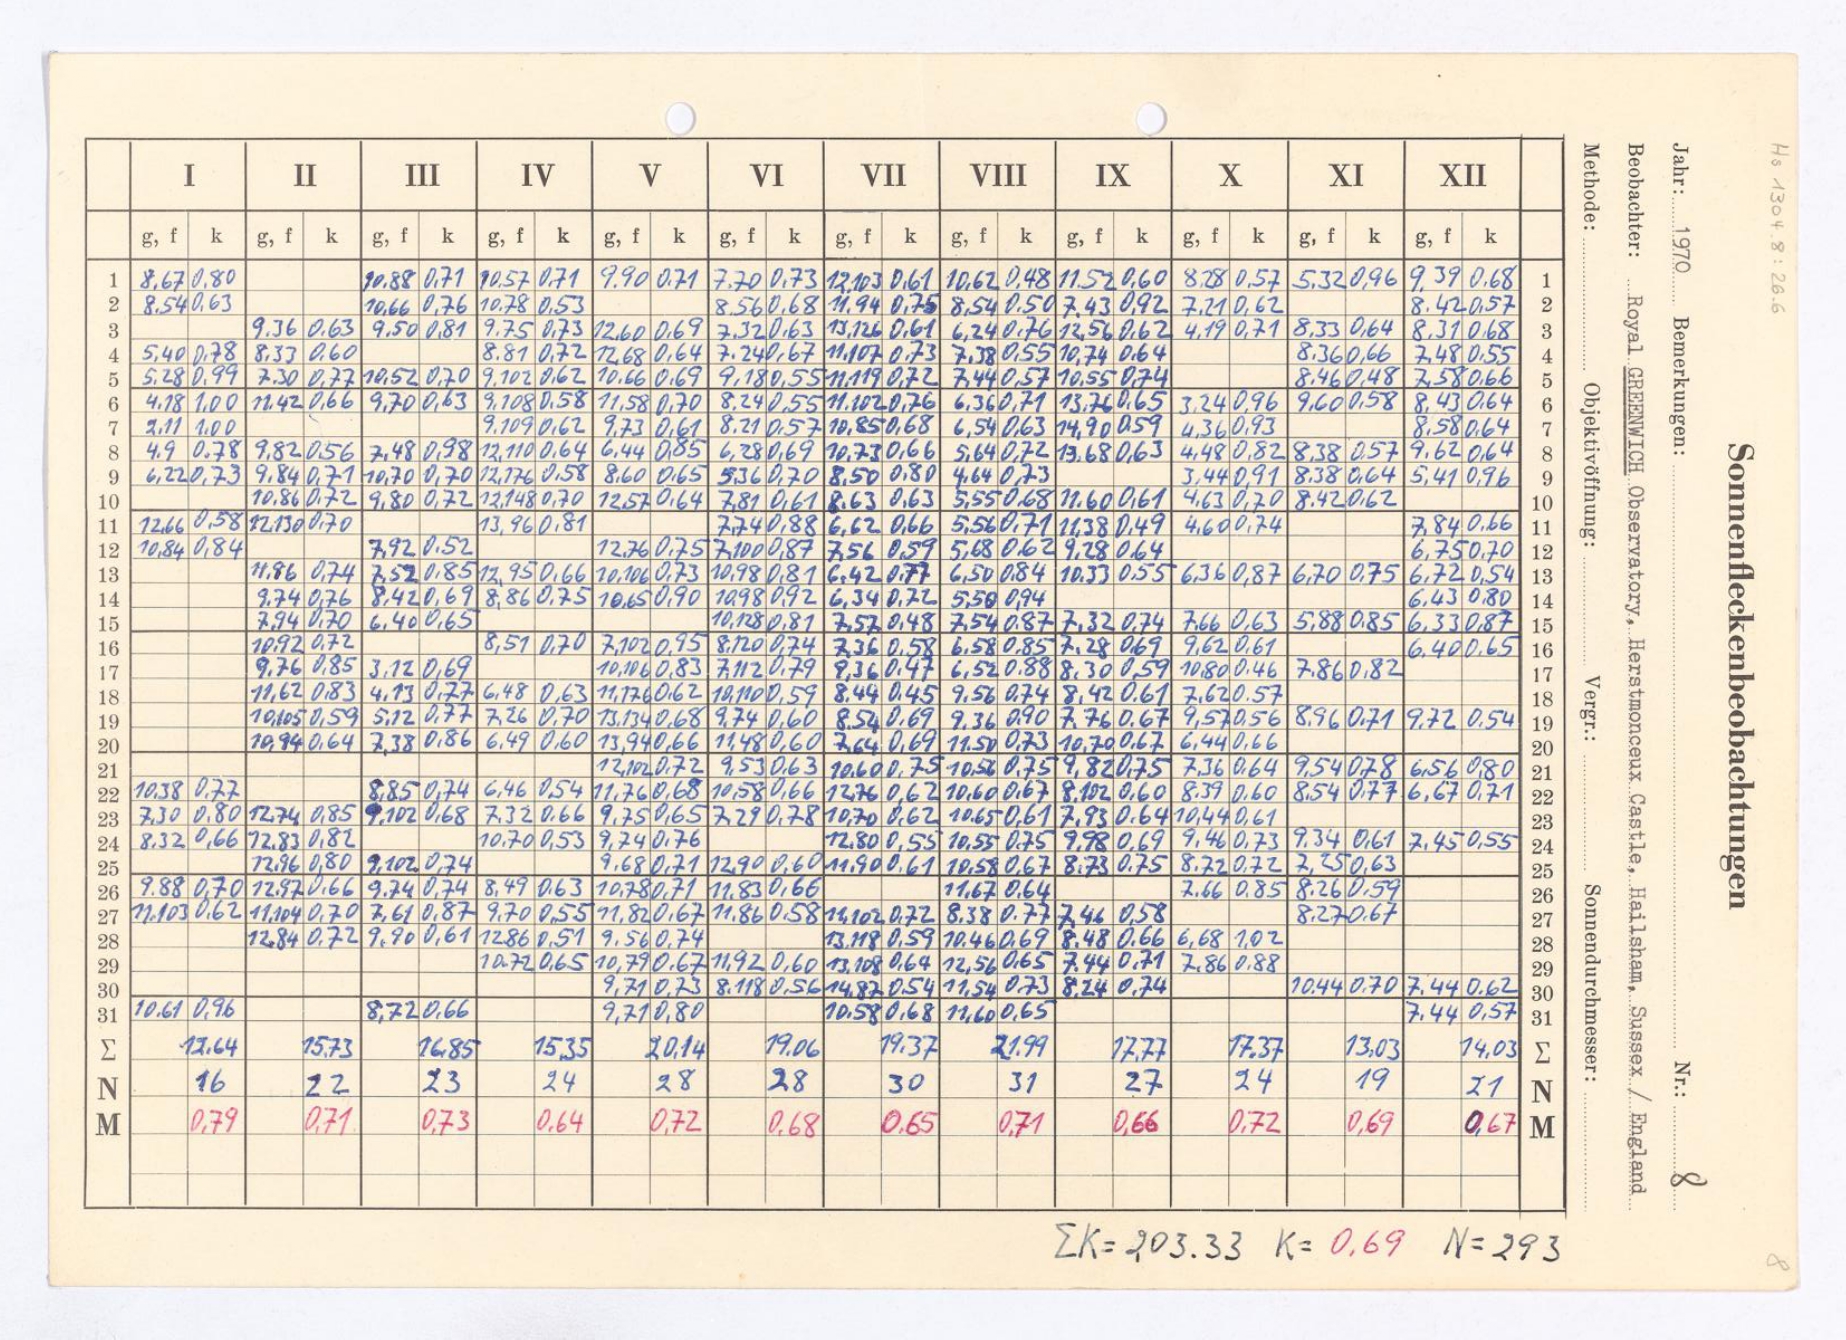 I II III IV V VI VII VIII IX X XI XII
g, f k g, f k g, f k g, f k g, f k g, f k g, f k g, f k g, f k g, f k g, f k g, f k
1 8,67 0,80 10.88 0,71 10.57 0,71 9.90 0.71 7.70 0,73 12,103 0,61 10,62 0,48 11.52 0,60 8.28 0,57 5,32 0,96 9,39 0.68 1
2 8,54 0,63 10.66 0,76 10.78 0,53 8.56 0,68 11.94 0,75 8,54 0.50 7,43 0,92 7.21 0,62 8.42 0,57 2
3 9.36 0.63 9,50 0,81 9.75 0,73 12.60 0,69 7.32 0,63 13,126 0.61 6,24 0,76 12,56 0,62 4,19 0,71 8,33 0,64 8,31 0,68 3
4 5,40 0,78 8.33 0,60 8.81 0,72 12,68 0,64 7.24 0,67 11,107 0,73 7,38 0,55 10,74 0.64 8.36 0,66 7,48 0.55 4
5 5,28 0,99 7.30 0,77 10,52 0,70 9,102 0,62 10.66 0,69 9,18 0,55 11,119 0,72 7,44 0,57 10,55 0,74 8.46 0,48 7,58 0.66 5
6 4.18 1,00 11.42 0,66 9,70 0,63 9,108 0,58 11,58 0,70 8.24 0,55 11,102 0,76 6.36 0,71 13,76 0,65 3,24 0,96 9,60 0.58 8,43 0,64 6
7 2.11 1.00 9.109 0,62 9,73 0,61 8.21 0,57 10,85 0,68 6,54 0,63 14,90 0.59 4,36 0,93 8,58 0,64 7
8 4.9 0.78 9,82 0,56 7,48 0,98 12,110 0,64 6,44 0,85 6,28 0,69 10,73 0,66 5,64 0,72 13.68 0,63 4,48 0,82 8,38 0,57 9,62 0,64 8
9 6,22 0,73 9,84 0,71 10,70 0,70 12,176 0,58 8,60 0,65 5,36 0,70 8,50 0,80 4,64 0,73 3,44 0,91 8,38 0,64 5,41 0,96 9
10 10.86 0,72 9,80 0,72 12,148 0,70 12,57 0,64 7,81 0,61 8.63 0,63 5,55 0.68 11.60 0,61 4.63 0,70 8.42 0,62 10
11 12.66 0,58 12.130 0,70 13,96 0,81 7,74 0,88 6,62 0,66 5,56 0,71 11,38 0,49 4.60 0,74 7,84 0,66 11
12 10,84 0,84 7,92 0.52 12,76 0,75 7,100 0,87 7,56 0,59 5,68 0,62 9,28 0,64 6,75 0,70 12
13 11,86 0,74 7,52 0,85 12,95 0,66 10,106 0,73 10,98 0,81 6,42 0,77 6,50 0,84 10.33 0.55 6,36 0,87 6,70 0,75 6,72 0,54 13
14 9,74 0,76 8,42 0,69 8,86 0,75 10,65 0,90 10,98 0,92 6,34 0,72 5,50 0,94 6,43 0,80 14
15 7,94 0,70 6,40 0,65 10,128 0,81 7,57 0,48 7,54 0,87 7,32 0,74 7,66 0,63 5,88 0,85 6,33 0,87 15
16 10,92 0,72 8,51 0,70 7,102 0,95 8,120 0,74 7,36 0,58 6,58 0,85 7,28 0,69 9,62 0,61 6,40 0,65 16
17 9,76 0,85 3,12 0,69 10,106 0,83 7,112 0,79 9,36 0,47 6,52 0.88 8,30 0,59 10,80 0,46 7.86 0,82 17
18 11,62 0,83 4,13 0,77 6,48 0,63 11,176 0,62 10,110 0,59 8.44 0,45 9,56 0,74 8,42 0,61 7,62 0,57 18
19 10,105 0,59 5,12 0,77 7,26 0,70 13,134 0,68 9,74 0,60 8,54 0,69 9,36 0,90 7,76 0,67 9,57 0,56 8,96 0,71 9,72 0,54 19
20 10,94 0,64 7,38 0,86 6,49 0,60 13,94 0,66 11,48 0,60 7,64 0,69 11.50 0,73 10,70 0,67 6,44 0,66 20
21 12,102 0,72 9,53 0,63 10.60 0,75 10,56 0,75 9,82 0,75 7,36 0,64 9,54 0,78 6,56 0,80 21
22 10.38 0,77 8,85 0,74 6,46 0,54 11,76 0,68 10,58 0,66 12,76 0,62 10,60 0,67 8,102 0,60 8.39 0,60 8,54 0,77 6,67 0,71 22
23 7,30 0,80 12,74 0,85 9,102 0,68 7.32 0,66 9,75 0,65 7,29 0,78 10,70 0,62 10.65 0,61 7,93 0.64 10,44 0,61 23
24 8,32 0,66 12.83 0,82 10.70 0,53 9,74 0,76 12.80 0,55 10,55 0,75 9,98 0,69 9,46 0,73 9,34 0,61 7,45 0,55 24
25 12,96 0,80 9,102 0,74 9.68 0,71 12,90 0,60 11,90 0,61 10,58 0,67 8.73 0.75 8,72 0,72 7,25 0,63 25
26 9.88 0,70 12,97 0,66 9,74 0,74 8,49 0.63 10,78 0,71 11.83 0,66 11,67 0.64 7.66 0,85 8.26 0.59 26
27 11,103 0,62 11,104 0,70 7,61 0,87 9,70 0,55 11,82 0,67 11,86 0,58 11,102 0,72 8.38 0,77 7,46 0,58 8.27 0,67 27
28 12,84 0,72 9,90 0,61 12.86 0,51 9,56 0,74 13,118 0,59 10,46 0,69 8,48 0.66 6,68 1,02 28
29 10.72 0,65 10,79 0,67 11,92 0,60 13,108 0,64 12,56 0,65 7,44 0,71 7,86 0,88 29
30 9,71 0,73 8,118 0,56 14,87 0,54 11,54 0,73 8,24 0,74 10.44 0,70 7,44 0.62 30
31 10.61 0,96 8,72 0,66 9,71 0,80 10.58 0,68 11,60 0,65 7,44 0,57 31
Σ 12.64 15,73 16.85 15,35 20,14 19,06 19.37 21.99 17,77 17.37 13,03 14,03 Σ
N 16 22 23 24 28 28 30 31 27 24 19 21 N
M 0,79 0,71 0,73 0,64 0,72 0,68 0,65 0,71 0,66 0,72 0,69 0,67 M
ΣK= 203.33 K= 0,69 N= 293
Hs 1304.8:20.6
Sonnenfleckenbeobachtungen
Jahr: 1970 Bemerkungen: Nr.: 8
Beobachter: Royal GREENWICH Observatory, Herstmonceux Castle, Hailsham, Sussex / England
Methode: Objektivöffnung: Vergr.: Sonnendurchmesser:
8